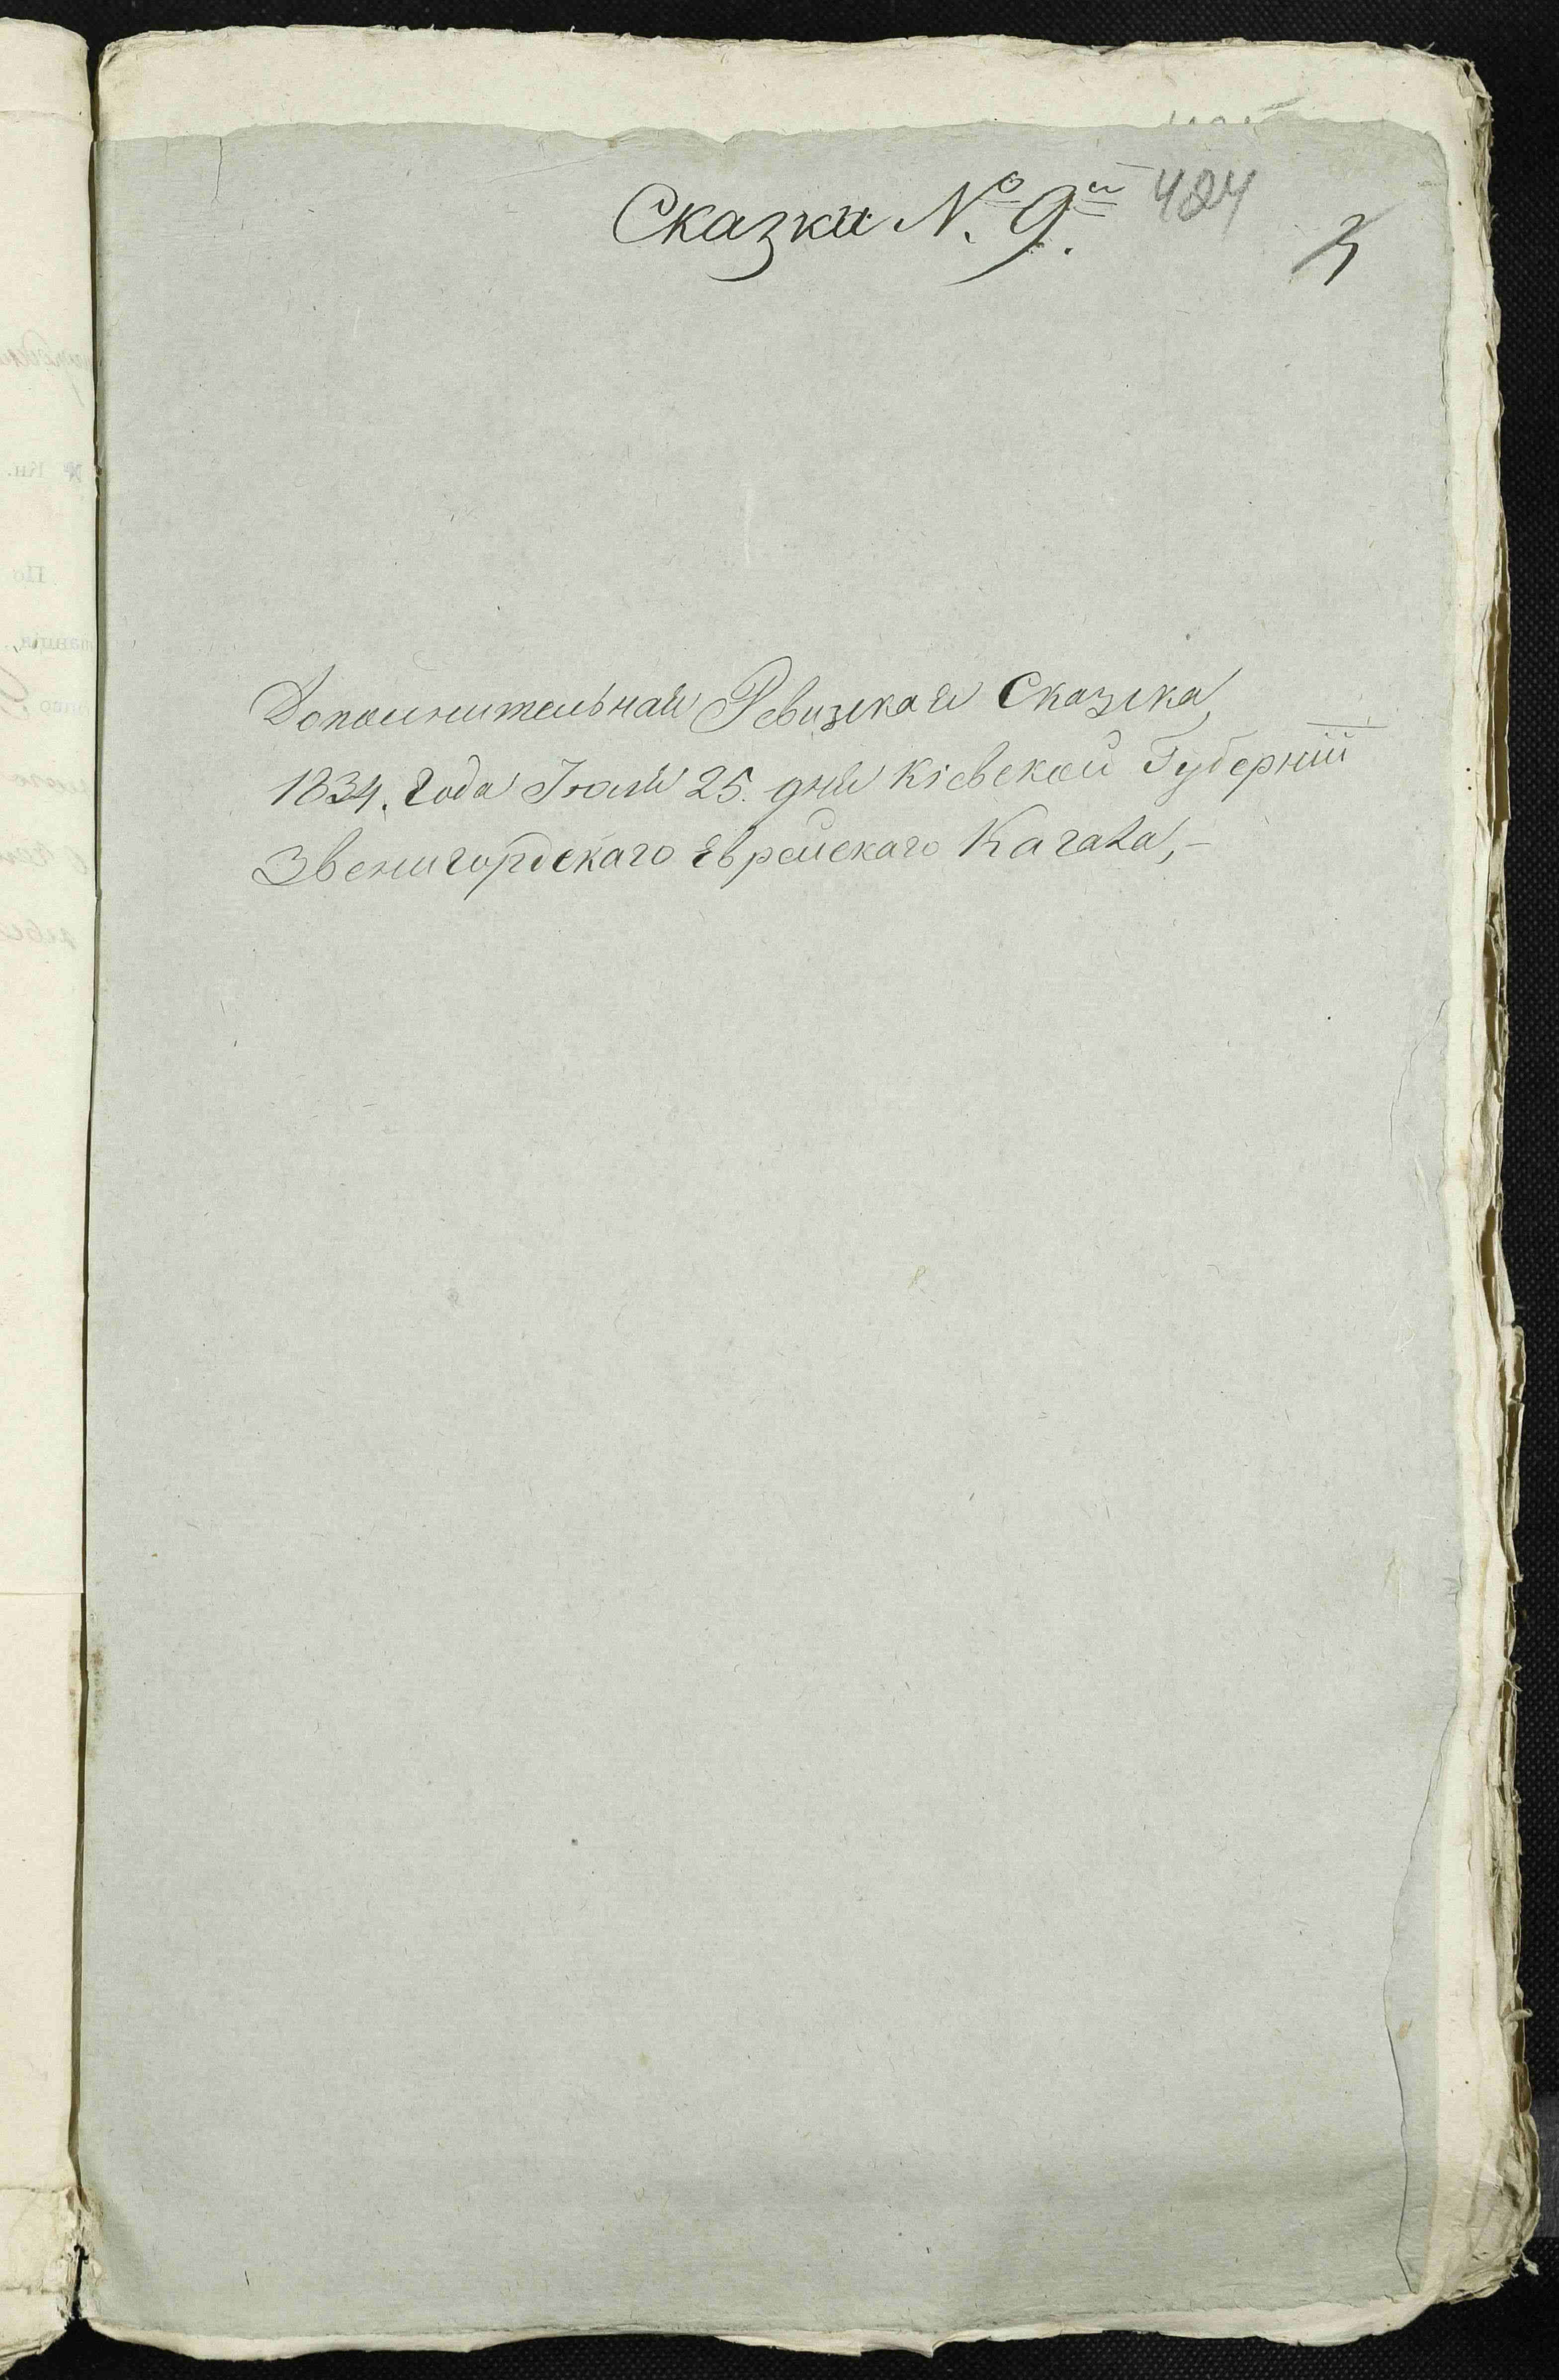 Сказка №. 9.я 424
3
Дополнительная Ревизкая Сказка,
1834. года Июля 25. дня Кіевской Губерніи
Звенигородскаго Еврейскаго Кагала,-